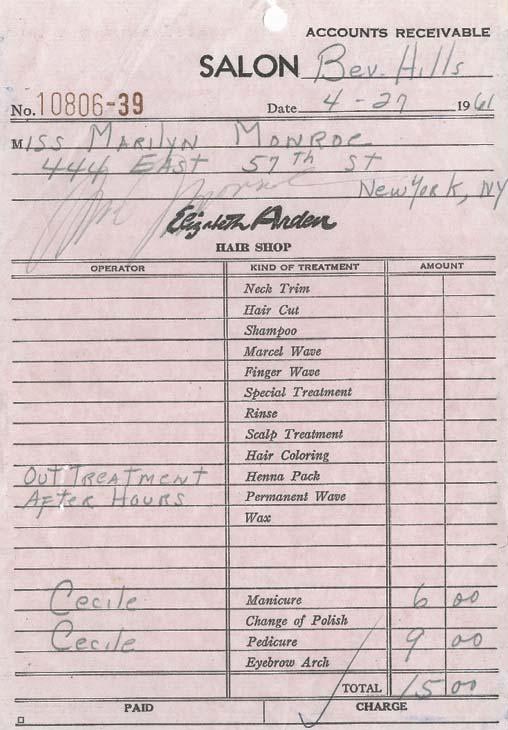 ACCOUNTS RECEIVABLE
SALON Bev. Hills
No. 10806-39 Date 4-27 1961
MISS MARILYN MONROE
444 EAST 57TH ST
NEW YORK, NY
Elizabeth Arden
HAIR SHOP
OPERATOR KIND OF TREATMENT AMOUNT
Neck Trim
Hair Cut
Shampoo
Marcel Wave
Finger Wave
Special Treatment
Rinse
Scalp Treatment
Hair Coloring
OUT TREATMENT Henna Pack
AFTER HOURS Permanent Wave
Wax
Cecile Manicure 6 00
Change of Polish
Cecile Pedicure 9 00
Eyebrow Arch
TOTAL 15 00
PAID CHARGE